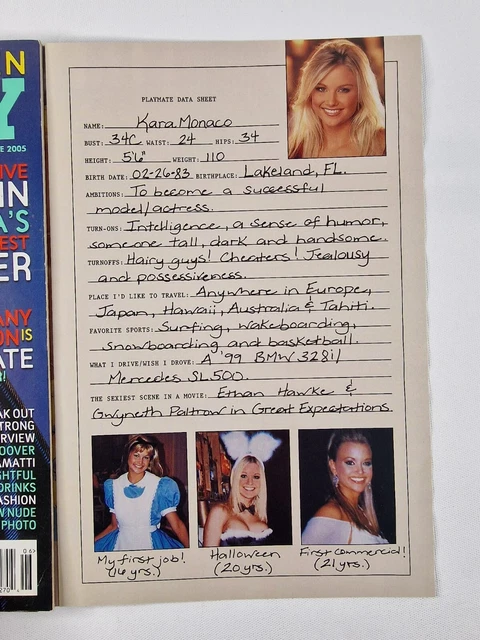 N
Y
E 2005
IVE
IN
A'S
EST
ER
ANY
ON IS
ATE
!
AK OUT
STRONG
RVIEW
OOVER
AMATTI
GHTFUL
DRINKS
ASHION
W NUDE
PHOTO
06
PLAYMATE DATA SHEET
NAME: Kara Monaco
BUST: 34C WAIST: 24 HIPS: 34
HEIGHT: 5'6" WEIGHT: 110
BIRTH DATE: 02-26-83 BIRTHPLACE: Lakeland, FL.
AMBITIONS: To become a successful
model/actress.
TURN-ONS: Intelligence, a sense of humor,
someone tall, dark and handsome.
TURNOFFS: Hairy guys! Cheaters! Jealousy
and possessiveness.
PLACE I'D LIKE TO TRAVEL: Anywhere in Europe,
Japan, Hawaii, Australia & Tahiti.
FAVORITE SPORTS: Surfing, wakeboarding,
snowboarding and basketball.
WHAT I DRIVE/WISH I DROVE: A '99 BMW 328i/
Mercedes SL500.
THE SEXIEST SCENE IN A MOVIE: Ethan Hawke &
Gwyneth Paltrow in Great Expectations.
My first job!
(16 yrs.)
Halloween
(20 yrs.)
First commercial!
(21 yrs.)